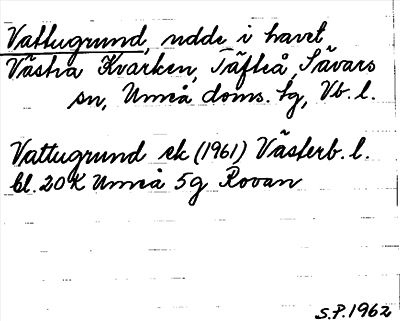 Vattugrund, udde i havet
Västra Kvarken, Täfteå, Sävars
sn, Umeå doms. tg, Vb. l.
Vattugrund ek (1961) Västerb. l.
bl. 20K Umeå 5g Rovan
S.P. 1962